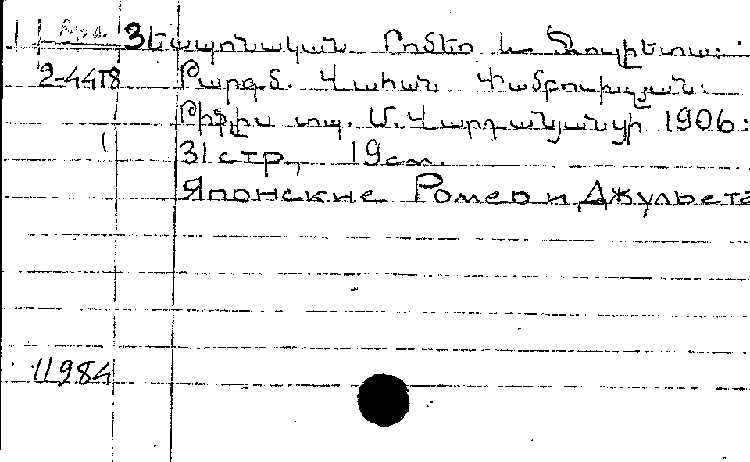 Յեապոնական Րոմեօ եւ Ջուլիետա:
2-4478 Թարգմ. Վահան Փամբուխչյան:
Թիֆլիս տպ. Մ. Վարդանյանցի 1906:
31 стр., 19см.
Японские Ромео и Джульета
11984